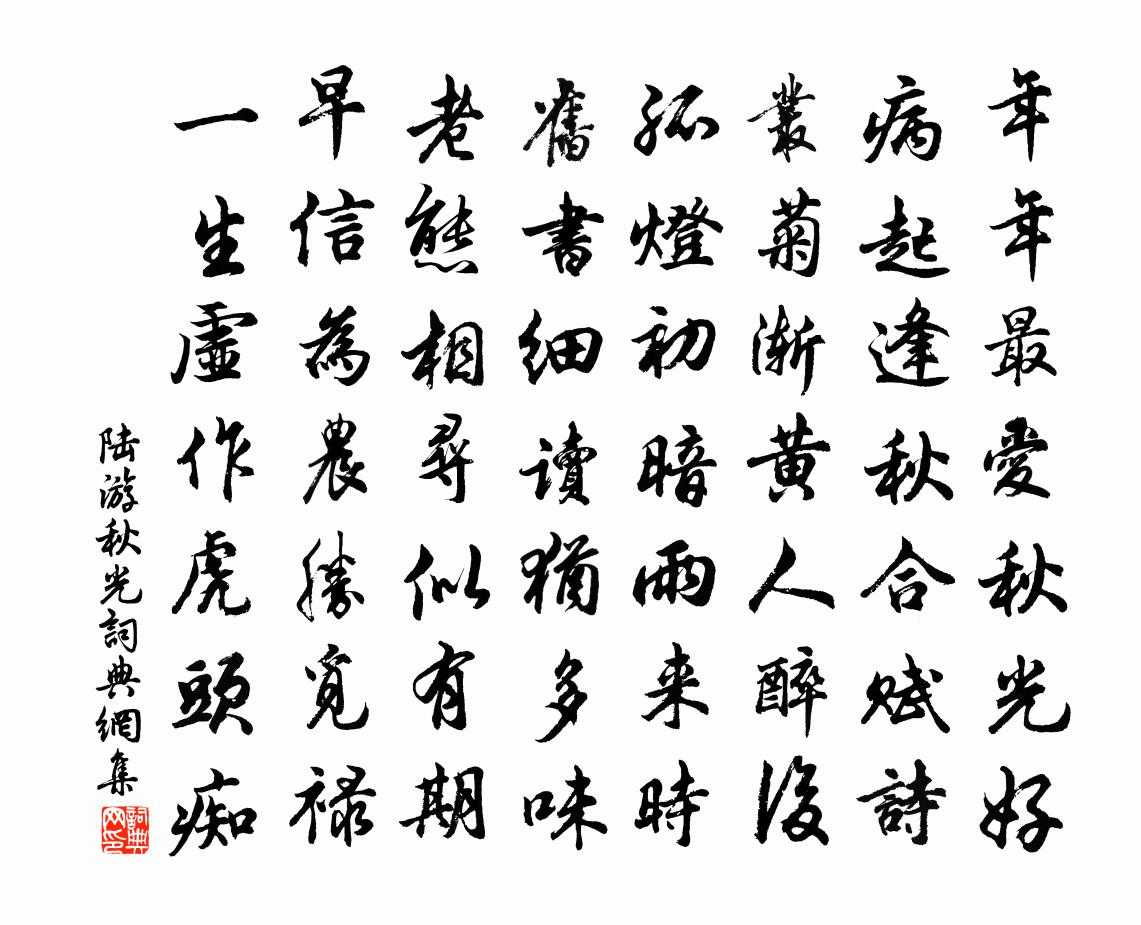 年年最愛秋光好
病起逢秋合賦詩
叢菊漸黃人醉後
孤燈初暗雨来時
舊書細讀猶多味
老態相尋似有期
早信為農勝覓祿
一生虛作虎頭痴
陆游秋光詞典網集
詞典网印